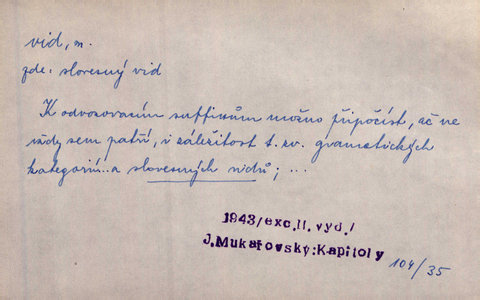 vid, m.
zde: slovesný vid
K odvozovacím suffixům možno připočíst, ač ne
vždy sem patří, i záležitost t. zv. gramatických
kategorií... a slovesných vidů; ...
1943/exc.II.vyd./
J.Mukařovský:Kapitoly
104/35